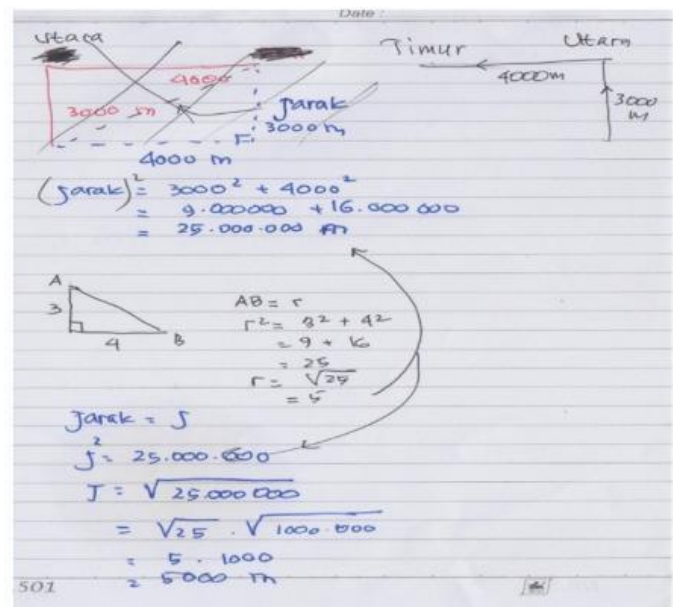 Date :
Utara
4000
3000 m
Jarak
3000 m
4000 m
Timur
Utara
4000 m
3000
M
(Jarak)² = 3000² + 4000²
= 9.000000 + 16.000 000
= 25.000.000 m
A
3
4
B
AB = r
r² = 3² + 4²
= 9 + 16
= 25
r = √25
= 5
Jarak = J
J² = 25.000.000
J = √25.000 000
= √25 . √1000.000
= 5 . 1000
= 5000 m
501